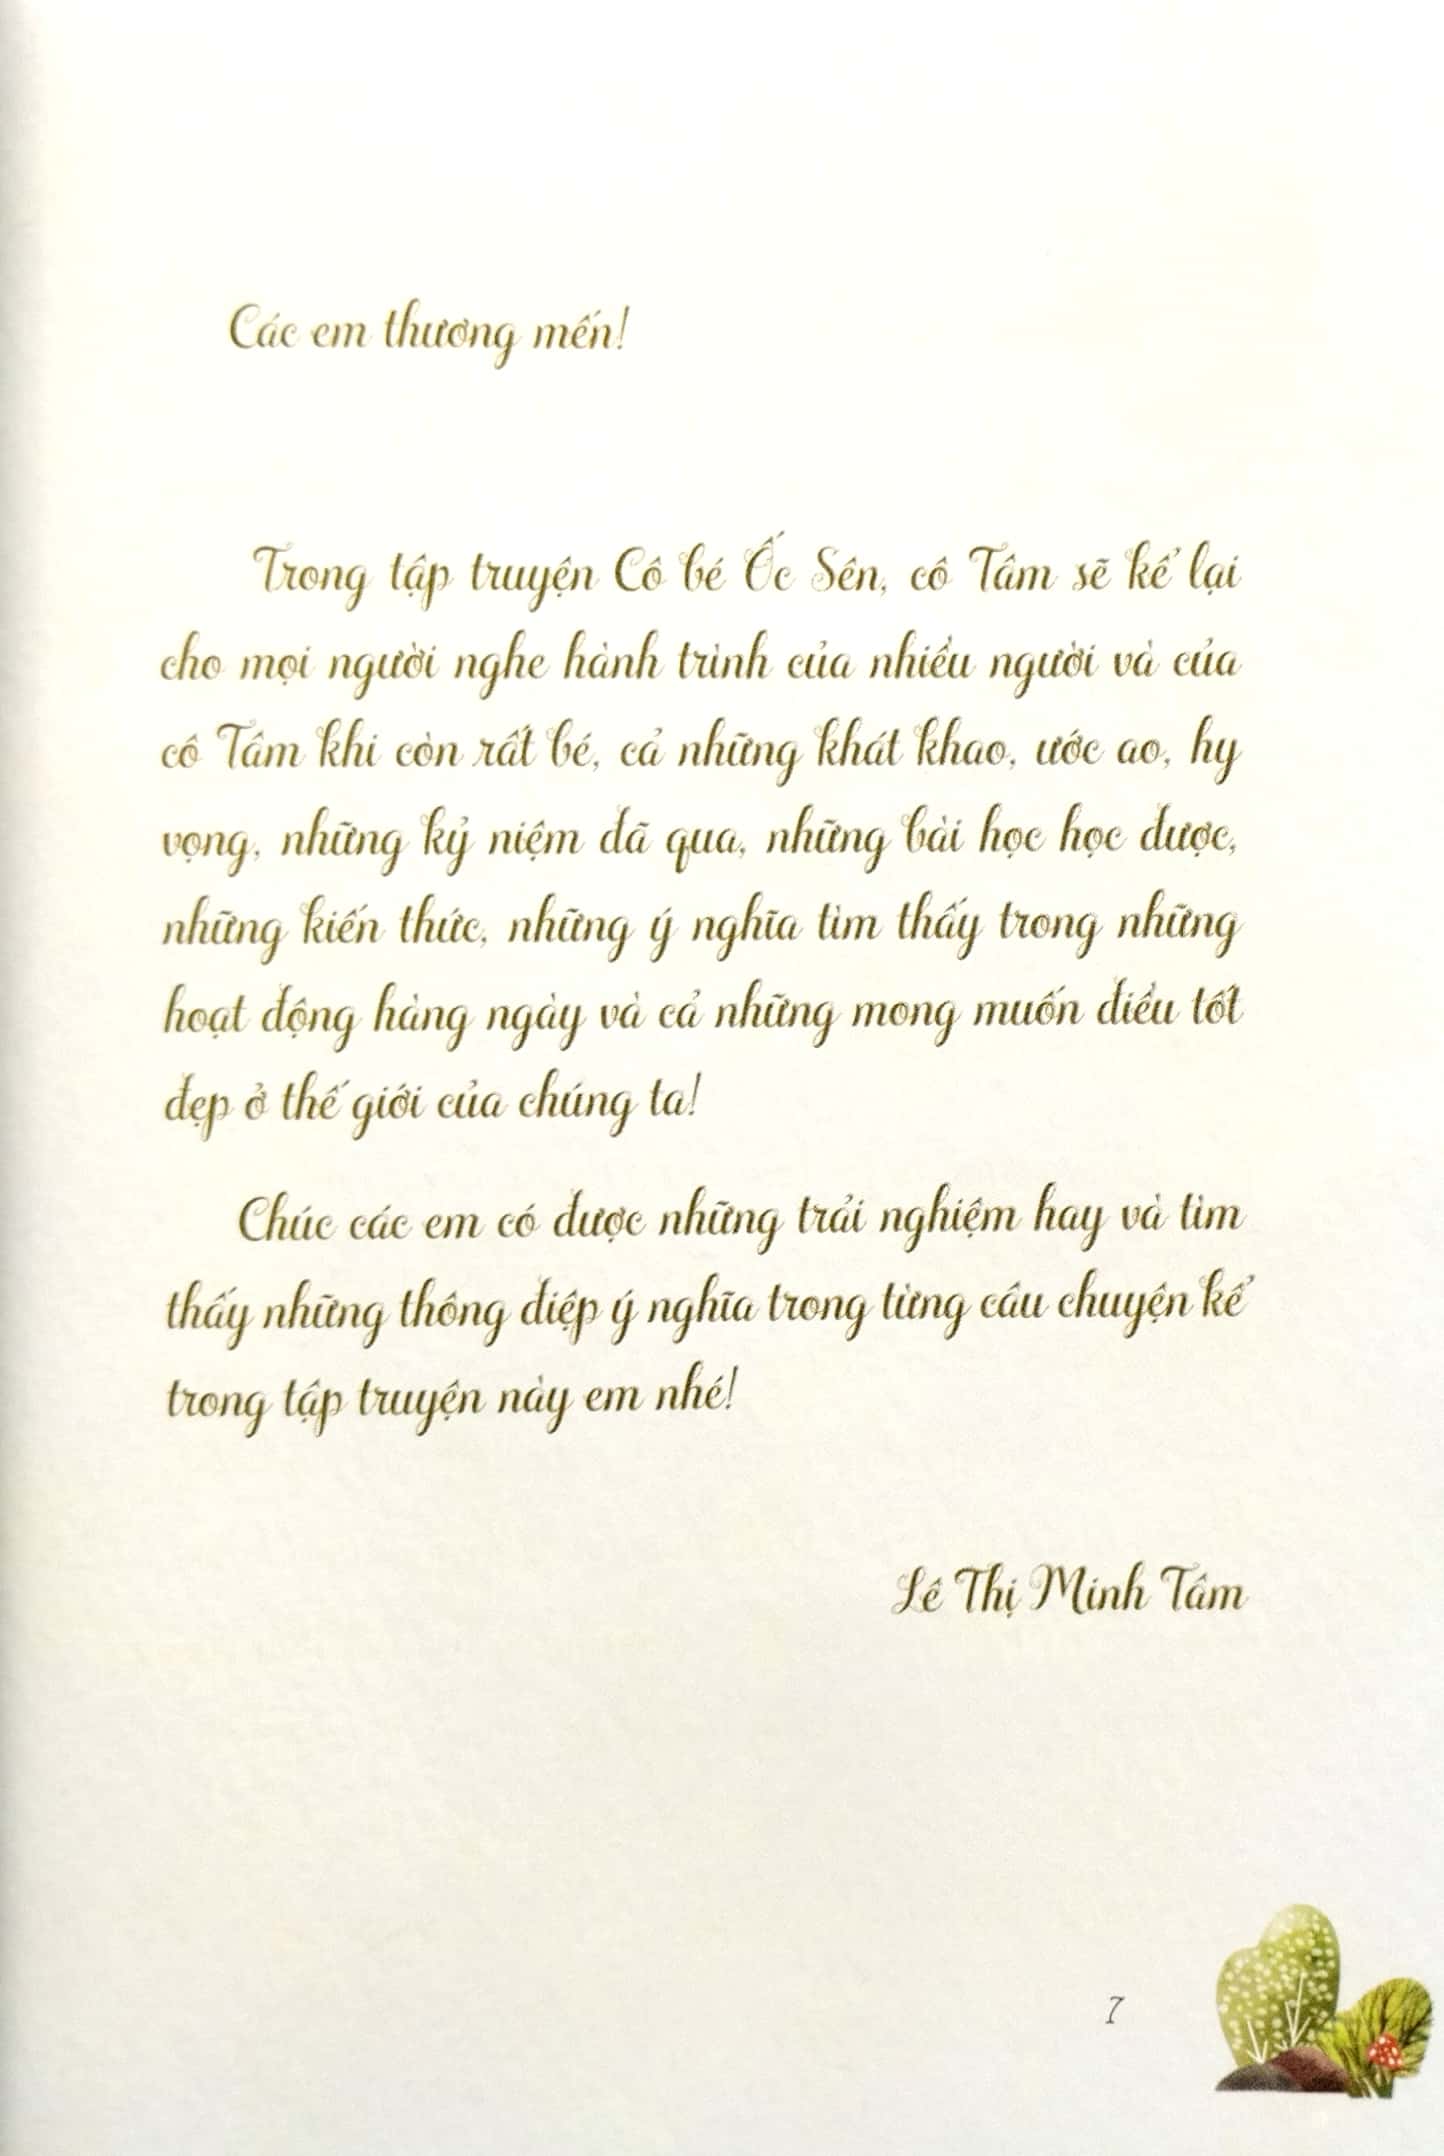 Các em thương mến!
Trong tập truyện Cô bé Ốc Sên, cô Tâm sẽ kể lại
cho mọi người nghe hành trình của nhiều người và của
cô Tâm khi còn rất bé, cả những khát khao, ước ao, hy
vọng, những kỷ niệm đã qua, những bài học học được,
những kiến thức, những ý nghĩa tìm thấy trong những
hoạt động hàng ngày và cả những mong muốn điều tốt
đẹp ở thế giới của chúng ta!
Chúc các em có được những trải nghiệm hay và tìm
thấy những thông điệp ý nghĩa trong từng câu chuyện kể
trong tập truyện này em nhé!
Lê Thị Minh Tâm
7